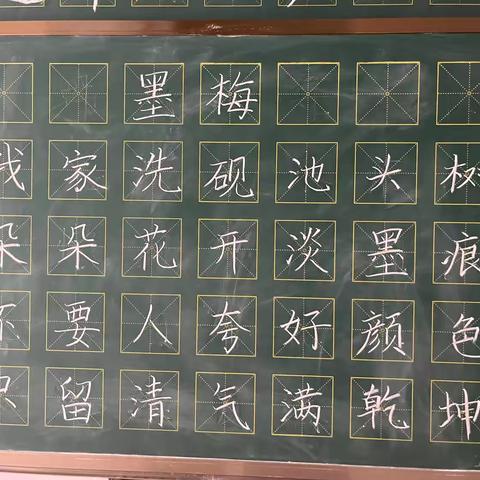 墨梅
我家洗砚池头树
朵朵花开淡墨痕
不要人夸好颜色
只留清气满乾坤